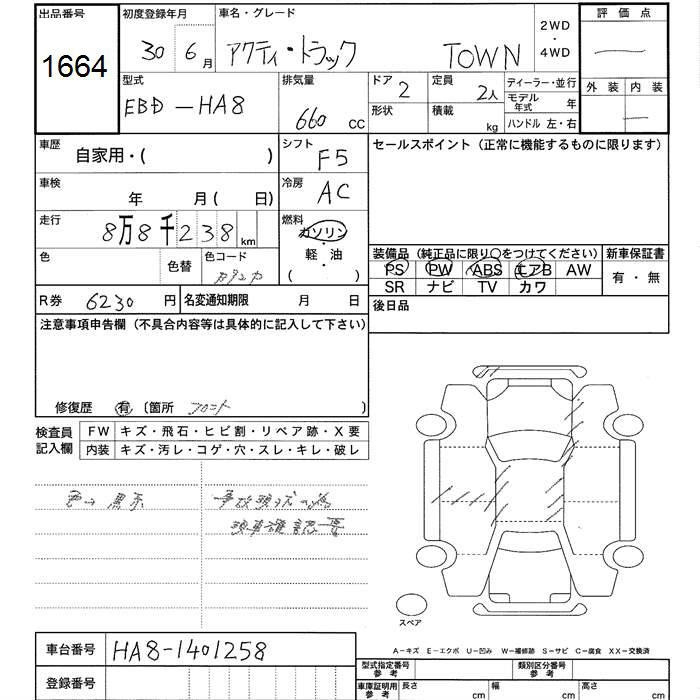 出品番号 初度登録年月 車名・グレード 2WD・4WD 評価点
1664 30 6月 アクティ・トラック TOWN
型式 排気量 ドア 2 定員 2人 ディーラー・並行 外装 内装
EBD-HA8 660cc 形状 積載 kg モデル年式 年
ハンドル 左・右
車歴 自家用・( ) シフト F5 セールスポイント(正常に機能するものに限ります)
車検 年 月( 日) 冷房 AC
走行 8万8千238km 燃料 ガソリン・軽油・( )
色 色替 色コード 装備品(純正品に限り○をつけてください) 新車保証書
PS PW ABS エアB AW 有・無
SR ナビ TV カワ
R券 6230円 名変通知期限 月 日 後日品
注意事項申告欄(不具合内容等は具体的に記入して下さい)
修復歴 有 〔箇所 フロント 〕
検査員記入欄 FW キズ・飛石・ヒビ割・リペア跡・X要
内装 キズ・汚レ・コゲ・穴・スレ・キレ・破レ
色→黒系 事故現状の為
現車確認要
スペア
A-キズ E-エクボ U-凹み W-補修跡 S-サビ C-腐食 XX-交換済
車台番号 HA8-1401258 型式指定番号参考 類別区分番号参考
登録番号 車庫証明用参考 長さ cm 幅 cm 高さ cm